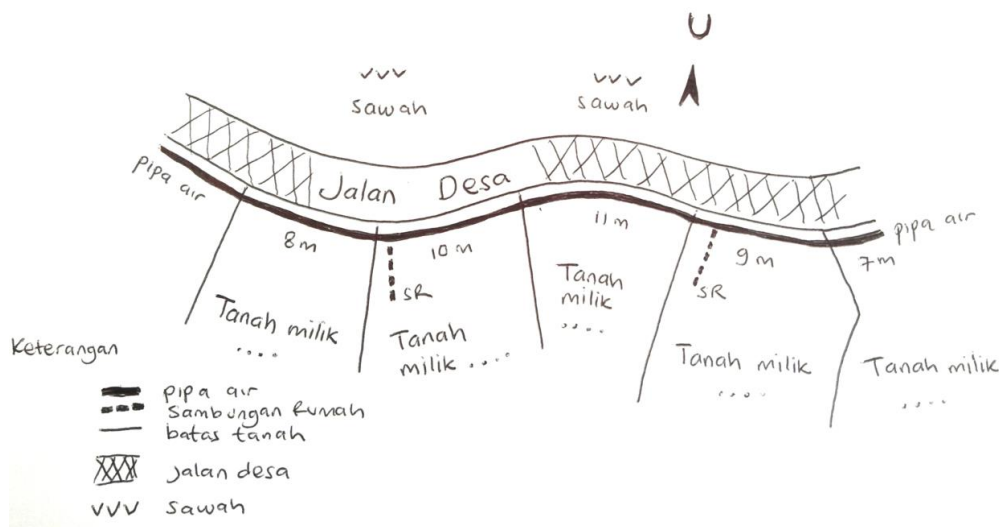 U
sawah
sawah
pipa air
Jalan Desa
pipa air
8m
10m
11m
9m
7m
SR
SR
Tanah milik
....
Tanah
milik ....
Tanah
milik
....
Tanah milik
....
Tanah milik
....
Keterangan
pipa air
Sambungan Rumah
batas tanah
Jalan desa
sawah